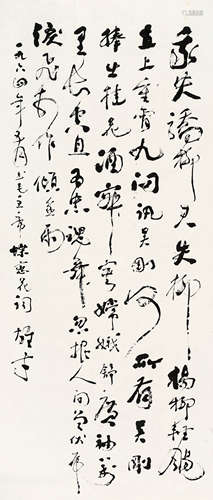 我失骄杨君失柳杨柳轻飏
直上重霄九问讯吴刚何所有吴刚
捧出桂花酒寂寞嫦娥舒广袖万
里长空且为忠魂舞忽报人间曾伏虎
泪飞顿作倾盆雨
一九六四年五月书毛主席蝶恋花词